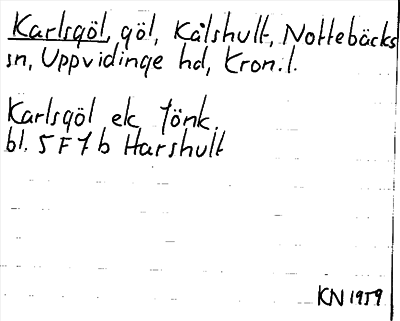 Karlsgöl, göl, Kålshult, Nottebäcks
sn, Uppvidinge hd, Kron.l.
Karlsgöl ek Jönk.
bl. 5F7b Harshult
KN 1959